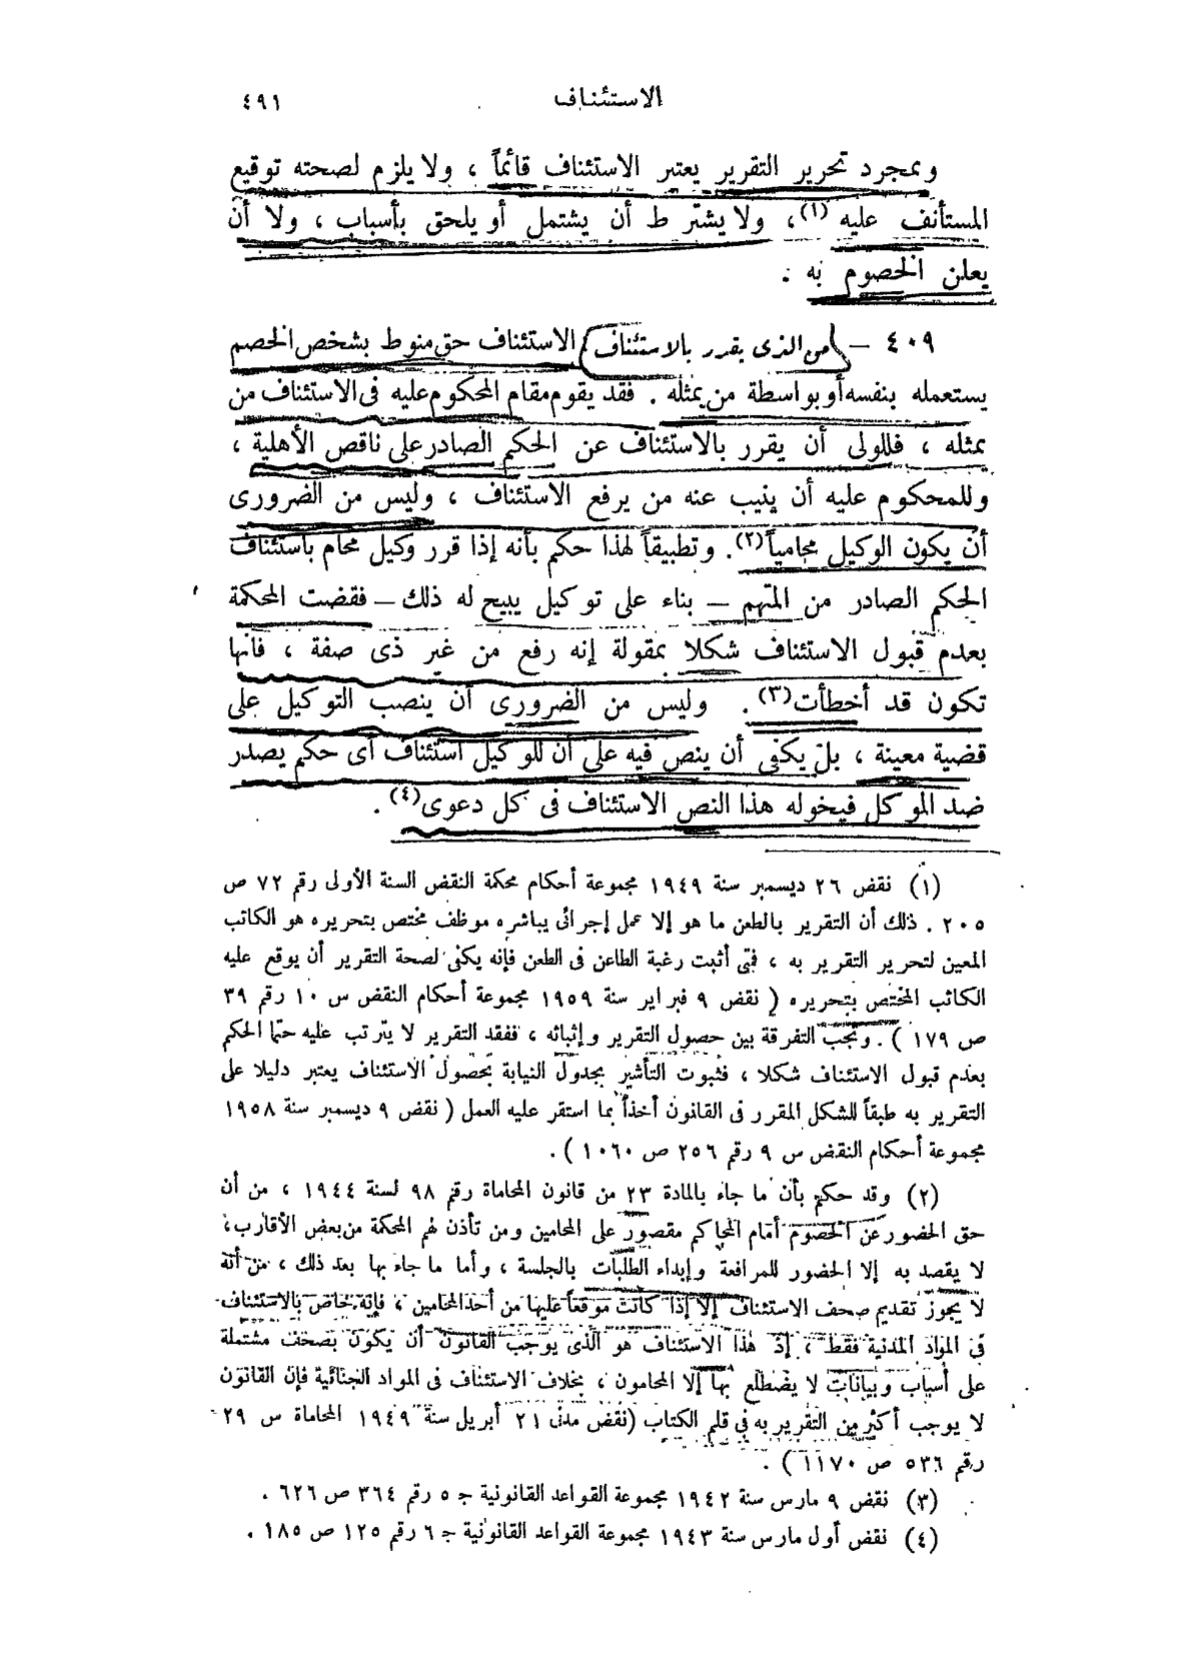 الاستئناف ٤٩١
وبمجرد تحرير التقرير يعتبر الاستئناف قائماً ، ولا يلزم لصحته توقيع
المستأنف عليه (١)، ولا يشترط أن يشتمل أو يلحق بأسباب ، ولا أن
يعلن الخصوم به .
٤٠٩ – من الذى يقرر بالاستئناف الاستئناف حق منوط بشخص الخصم
يستعمله بنفسه أو بواسطة من يمثله . فقد يقوم مقام المحكوم عليه فى الاستئناف من
يمثله ، فللولى أن يقرر بالاستئناف عن الحكم الصادر على ناقص الأهلية ،
وللمحكوم عليه أن ينيب عنه من يرفع الاستئناف ، وليس من الضرورى
أن يكون الوكيل محامياً (٢). وتطبيقاً لهذا حكم بأنه إذا قرر وكيل محام باستئناف
الحكم الصادر من المتهم – بناء على توكيل يبيح له ذلك – فقضت المحكمة
بعدم قبول الاستئناف شكلا بمقولة إنه رفع من غير ذى صفة ، فانها
تكون قد أخطأت (٣). وليس من الضرورى أن ينصب التوكيل على
قضية معينة ، بل يكفى أن ينص فيه على أن للوكيل استئناف أى حكم يصدر
ضد الموكل فيخوله هذا النص الاستئناف فى كل دعوى (٤).
(١) نقض ٢٦ ديسمبر سنة ١٩٤٩ مجموعة أحكام محكمة النقض السنة الأولى رقم ٧٢ ص
٢٠٥ . ذلك أن التقرير بالطعن ما هو إلا عمل إجرائى يباشره موظف مختص بتحريره هو الكاتب
المعين لتحرير التقرير به ، فمتى أثبت رغبة الطاعن فى الطعن فإنه يكفى لصحة التقرير أن يوقع عليه
الكاتب المختص بتحريره ( نقض ٩ فبراير سنة ١٩٥٩ مجموعة أحكام النقض س ١٠ رقم ٣٩
ص ١٧٩ ) . وتجب التفرقة بين حصول التقرير وإثباته ، ففقد التقرير لا يترتب عليه حتما الحكم
بعدم قبول الاستئناف شكلا ، فثبوت التأشير بجدول النيابة بحصول الاستئناف يعتبر دليلا على
التقرير به طبقاً للشكل المقرر فى القانون أخذاً بما استقر عليه العمل ( نقض ٩ ديسمبر سنة ١٩٥٨
مجموعة أحكام النقض س ٩ رقم ٢٥٦ ص ١٠٦٠ ) .
(٢) وقد حكم بأن ما جاء بالمادة ٢٣ من قانون المحاماة رقم ٩٨ لسنة ١٩٤٤ ، من أن
حق الحضور عن الخصوم أمام المحاكم مقصور على المحامين ومن تأذن لهم المحكمة من بعض الأقارب،
لا يقصد به إلا الحضور للمرافعة وإبداء الطلبات بالجلسة ، وأما ما جاء بها بعد ذلك ، من أنه
لا يجوز تقديم صحف الاستئناف إلا إذا كانت موقعاً عليها من أحد المحامين ، فإنه خاص بالاستئناف
فى المواد المدنية فقط ، إذ هذا الاستئناف هو الذى يوجب القانون أن يكون بصحف مشتملة
على أسباب وبيانات لا يضطلع بها إلا المحامون ، بخلاف الاستئناف فى المواد الجنائية فإن القانون
لا يوجب أكثر من التقرير به فى قلم الكتاب (نقض مدنى ٢١ أبريل سنة ١٩٤٩ المحاماة س ٢٩
رقم ٥٣٦ ص ١١٧٠ ) .
(٣) نقض ٩ مارس سنة ١٩٤٢ مجموعة القواعد القانونية ج ٥ رقم ٣٦٤ ص ٦٢٦ .
(٤) نقض أول مارس سنة ١٩٤٣ مجموعة القواعد القانونية ج ٦ رقم ١٢٥ ص ١٨٥ .